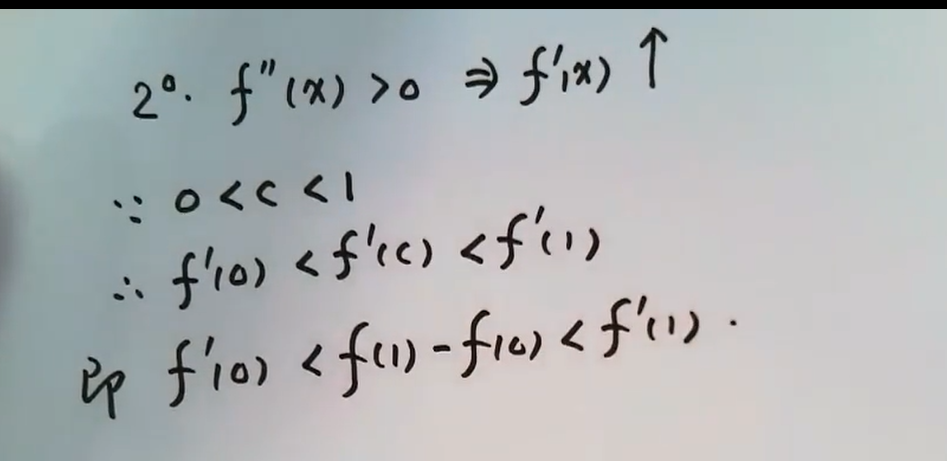 2°. f''(x) > 0 ⇒ f'(x) ↑
∵ 0 < c < 1
∴ f'(0) < f'(c) < f'(1)
即 f'(0) < f(1) - f(0) < f'(1).